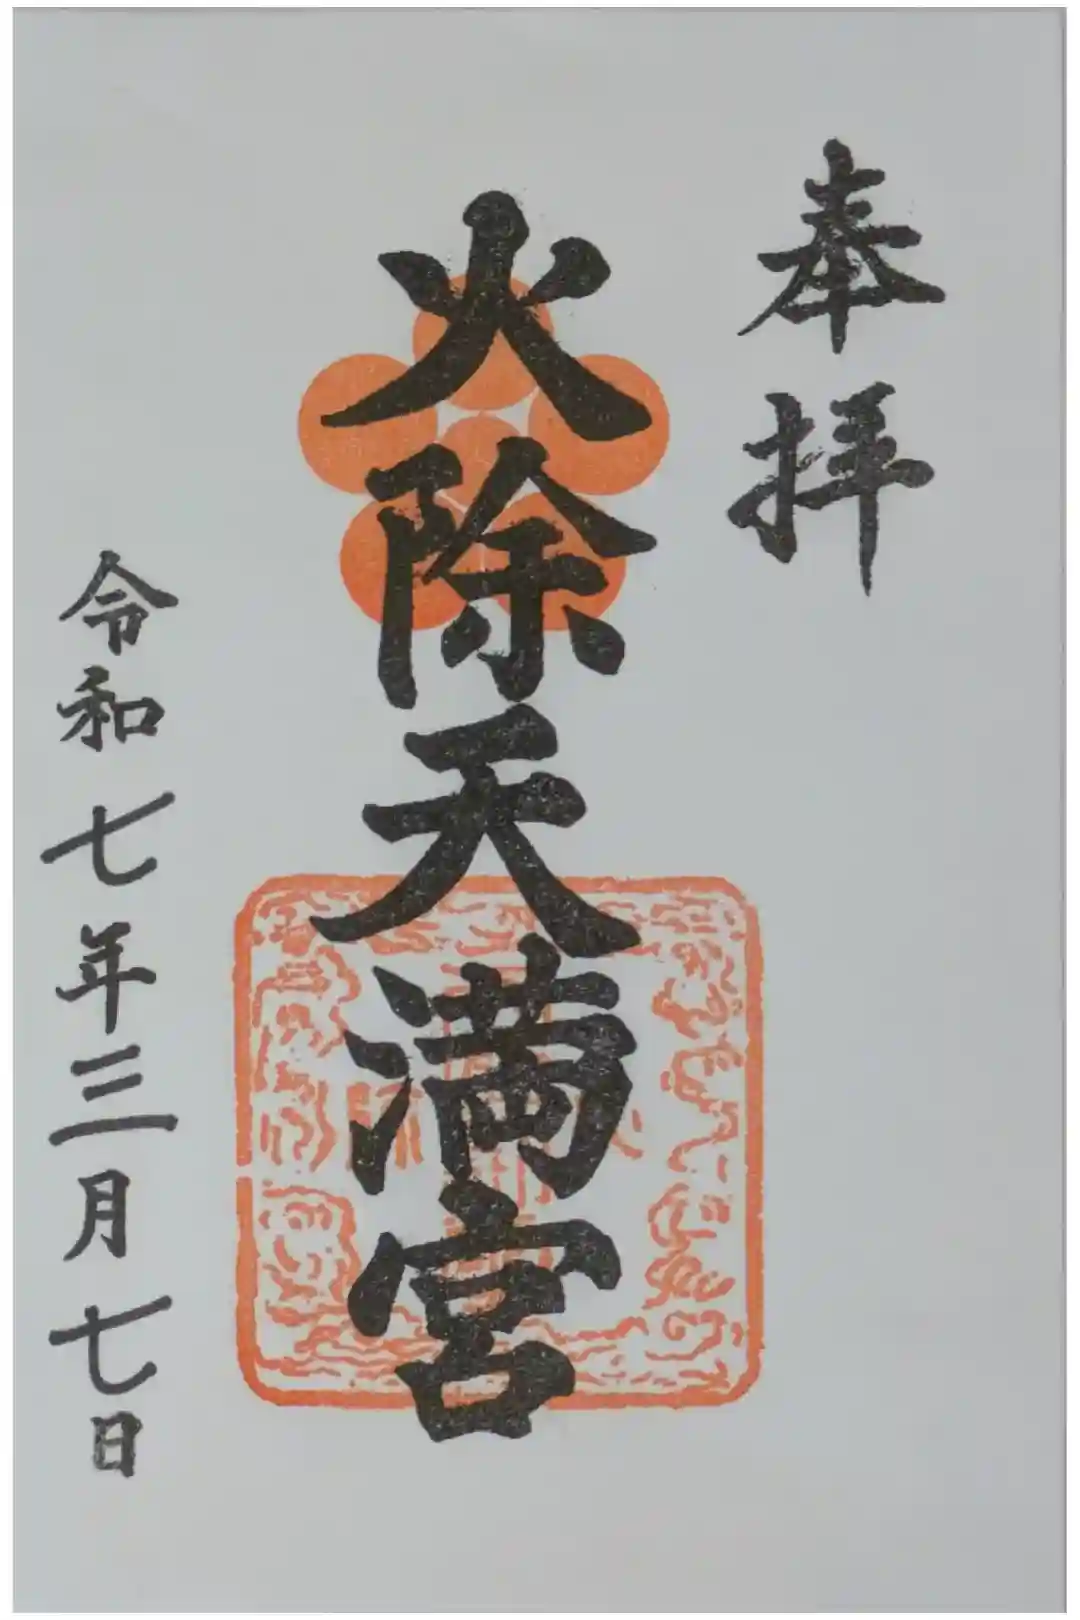 奉拝
火除天満宮
令和七年三月七日